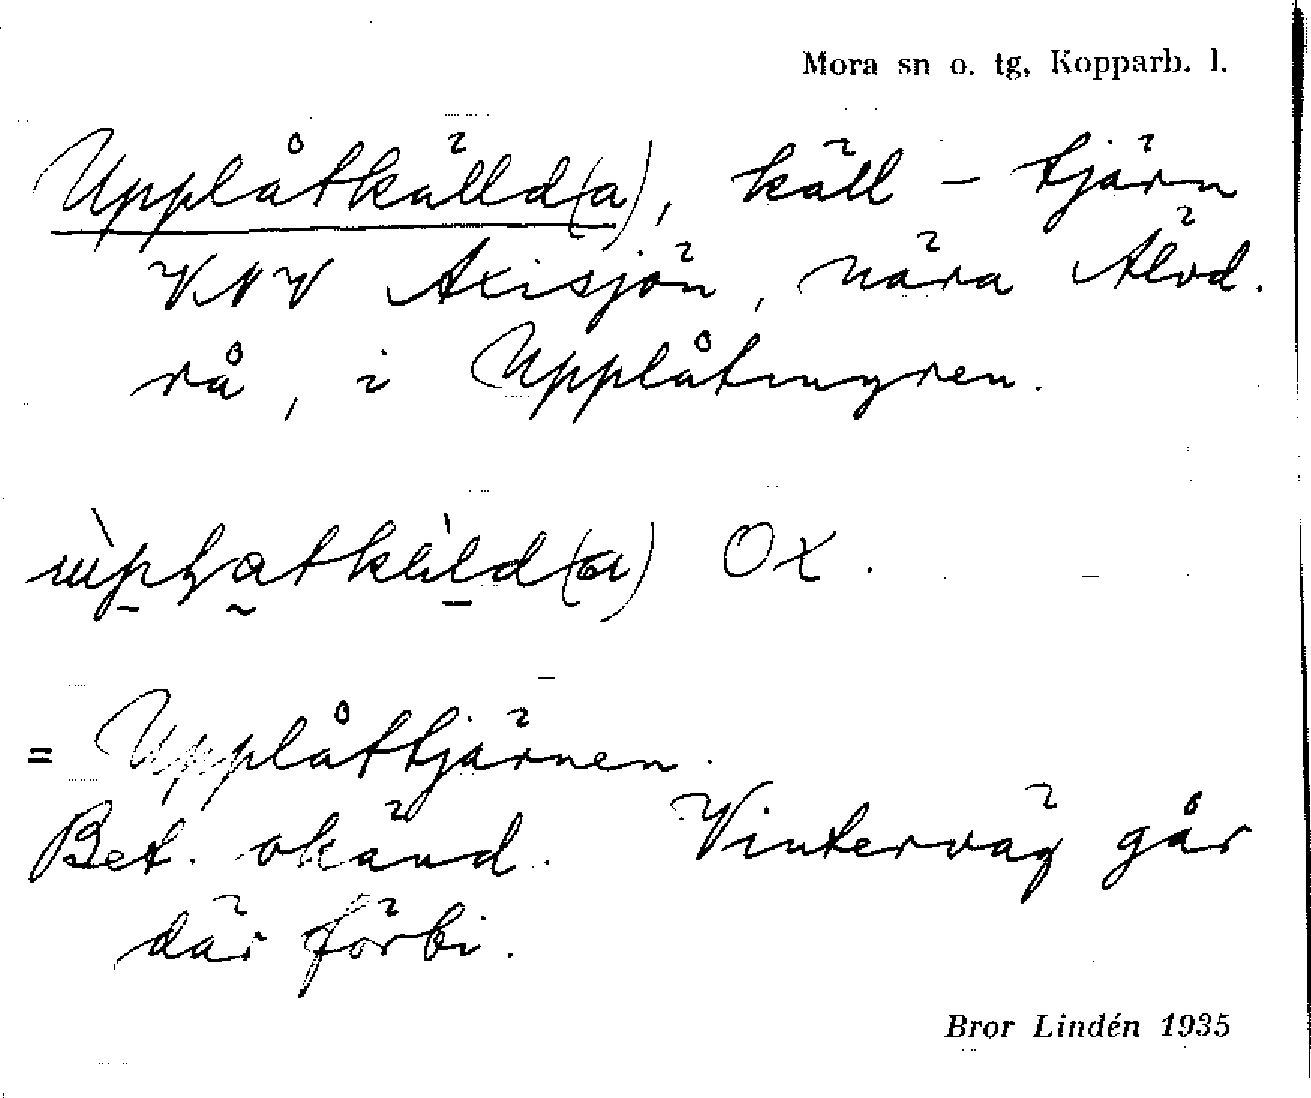 Mora sn o. tg, Kopparb. l.
Upplåtkälld(a), käll-tjärn
VNV Axisjön, nära Älvd.
rå, i Upplåtmyren.
Ox.
= Upplåttjärnen.
Bet. okänd. Vinterväg går
där förbi.
Bror Lindén 1935